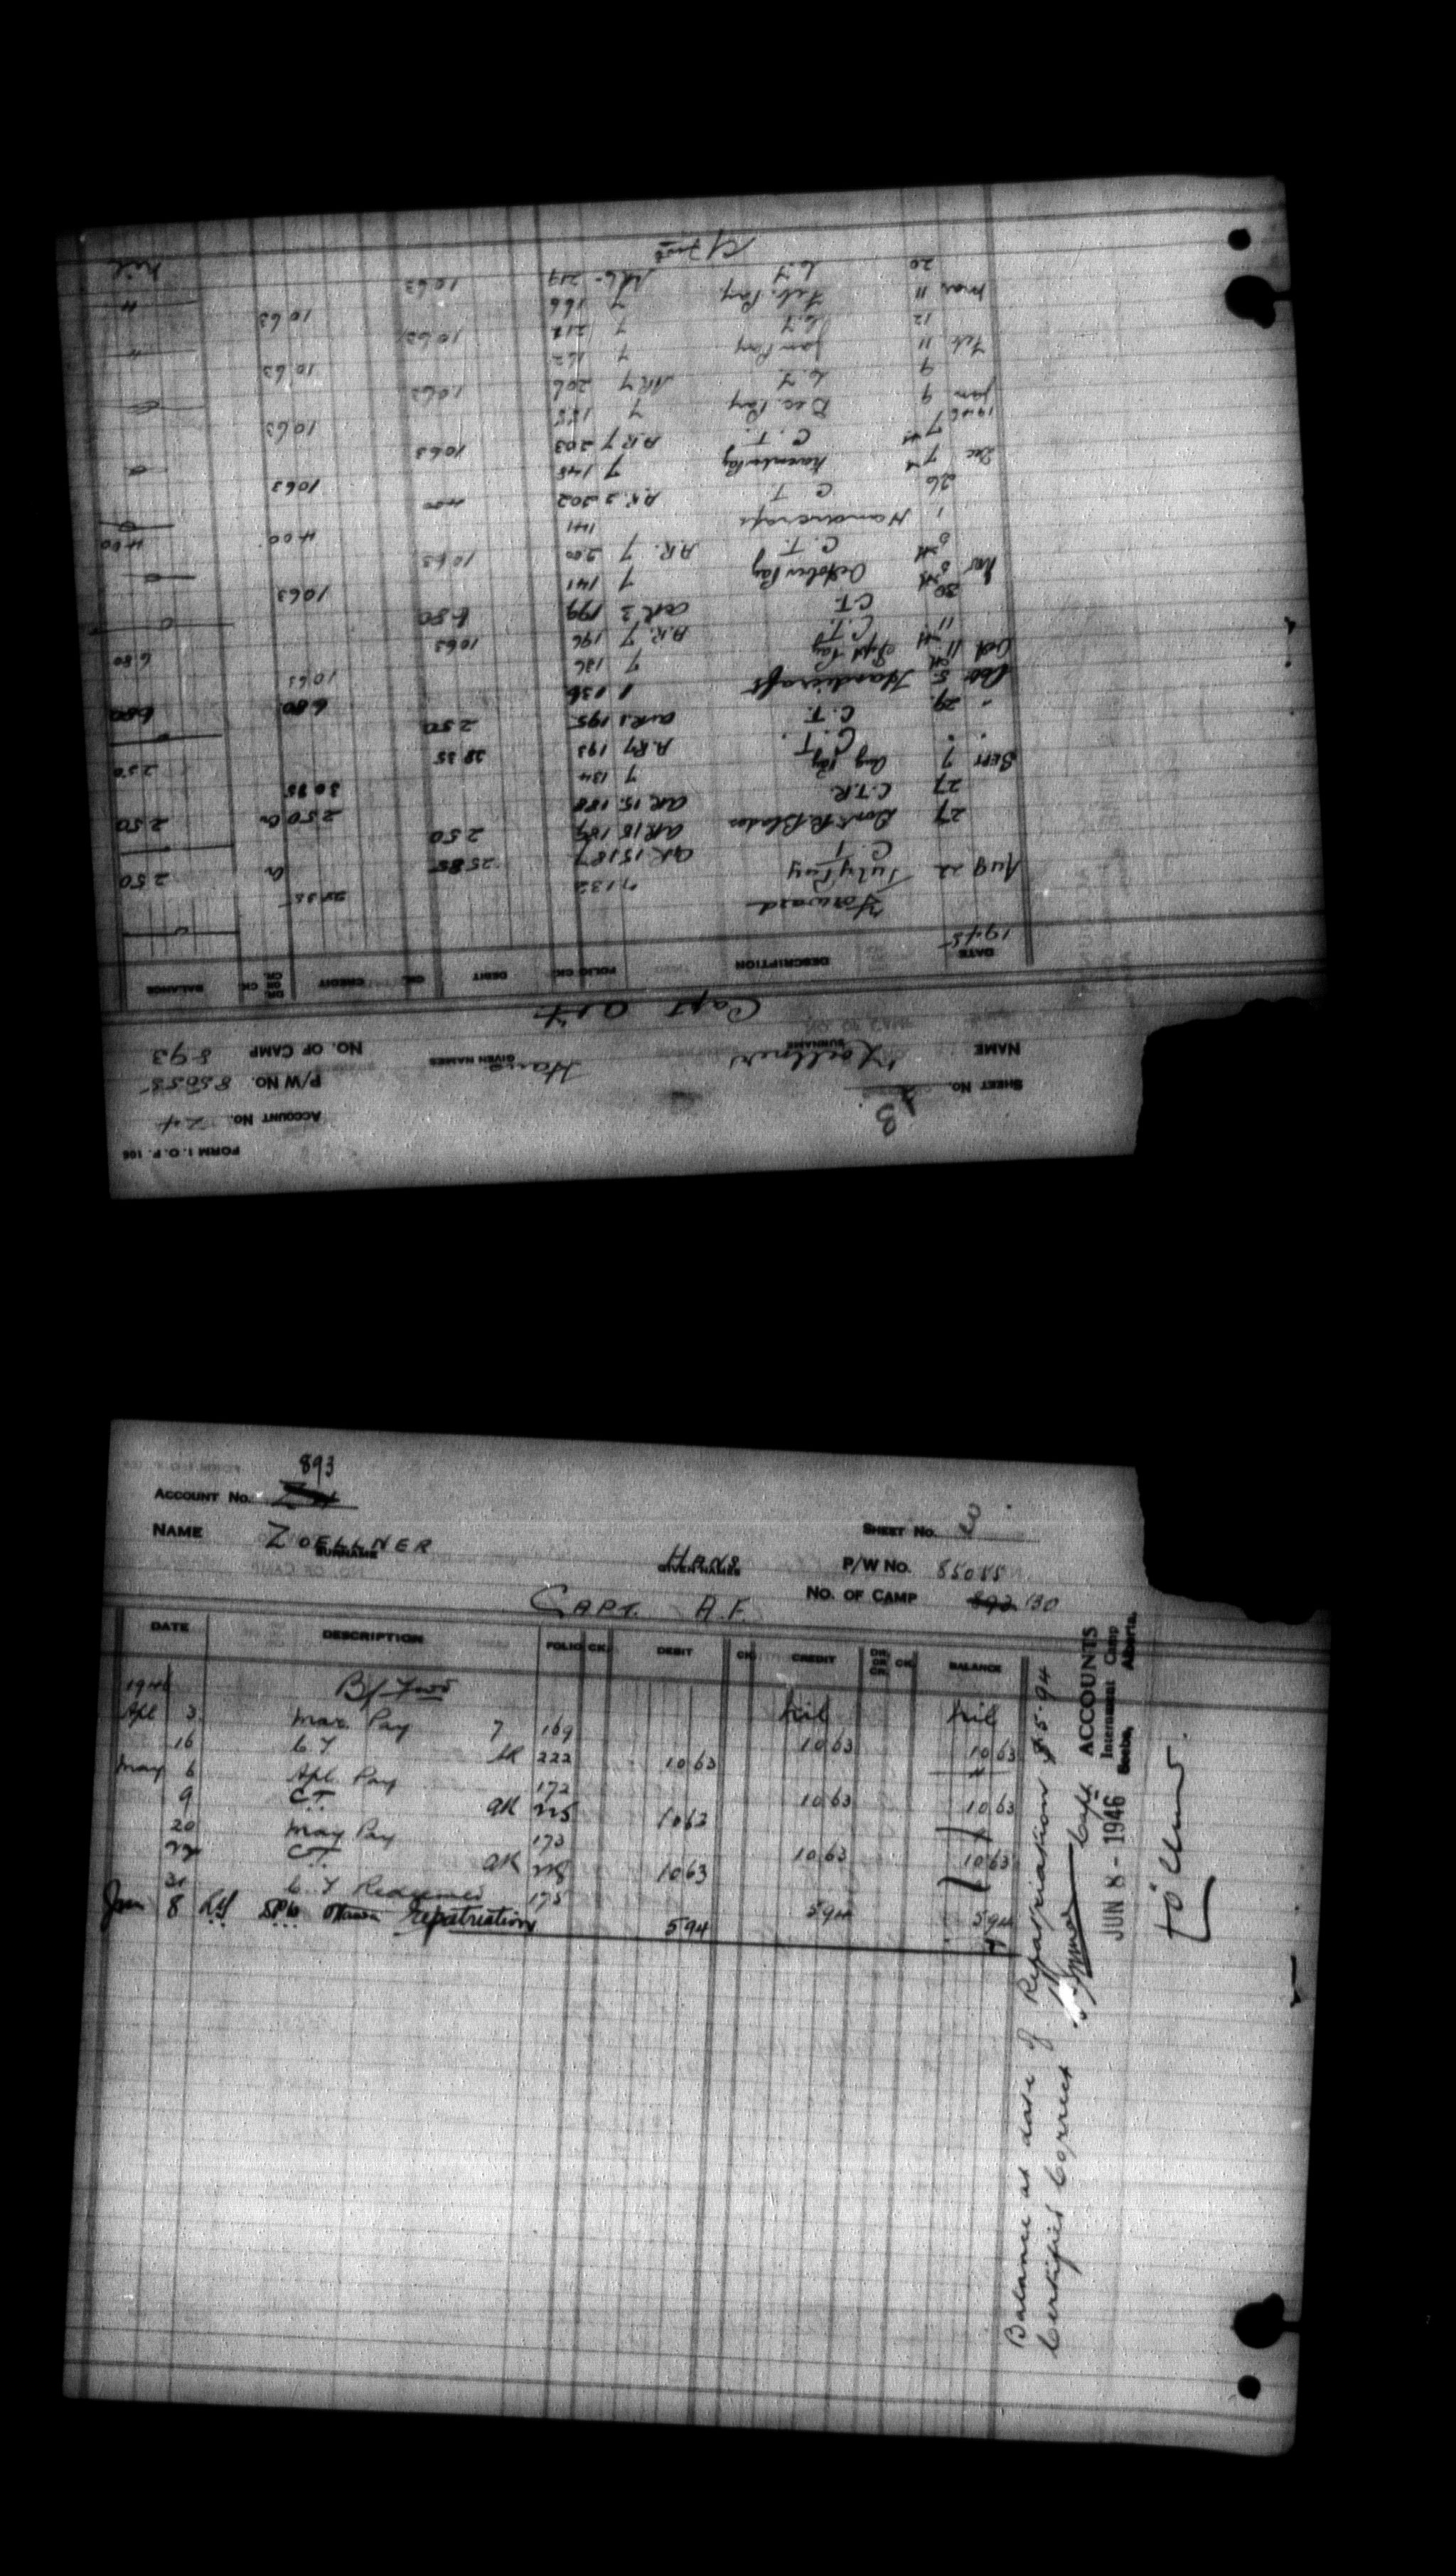 FORM I.O.P. 106
ACCOUNT No. Z4
P/W No. 85055
No. OF CAMP 893
SHEET No. 3
NAME Zoellner Hans
SURNAME GIVEN NAMES
Capt
DATE DESCRIPTION FOLIO CK. DEBIT CK. CREDIT DR. OR CR. CK. BALANCE
1945
Forward
Aug 22 July Pay 7 132 25 85
C.T. AR 15 187 25 85
27 AR 15 189 2 50 2 50
27 C.T.R. AR 15 188 2 50 Cr 2 50
Sept 7 Aug Pay 7 134
C.T. AR 7 193
29 C.T. AR 1 195 2 50
Oct 5 Handicraft 1 136 6 80 6 80
Oct 11 Sept Pay 7 136 10 63
11 C.T. A.R. 7 196 10 63 6 80
30 C.T. AR 3 199 6 80
Nov October Pay 7 141 10 63
C.T. A.R. 7 200 10 63
1 Handicraft 141 4 00 4 00
26 C.T. A.R. 2 202 4 00
Dec 7 November Pay 7 148 10 63
7 C.T. A.R 7 203 10 63
1946
Jan 9 Dec. Pay 7 155 10 63
9 C.T. AR 7 206 10 63
Feb 11 Jan Pay 7 162 10 63
12 C.T. 7 212 10 63
Mar 11 Feb. Pay 7 166 10 63
20 C.T. 219 10 63 nil
C/Fwd
893
ACCOUNT No.
NAME ZOELLNER HANS
SURNAME GIVEN NAMES
SHEET No.
P/W No. 85055
No. OF CAMP 893 130
CAPT. A.F.
DATE DESCRIPTION FOLIO CK. DEBIT CK. CREDIT DR. OR CR. CK. BALANCE
1946 B/Fwd nil nil
Apl 3 Mar. Pay 7 169 10 63 10 63
16 C.T. AR 222 10 63
May 6 Apl. Pay 172 10 63 10 63
9 C.T. AR 225 10 63
20 May Pay 173 10 63 10 63
22 C.T. AR 228 10 63
31 C.T Redeemed 175 5 94 5 94
Jun 8 Ottawa Repatriation 5 94
Balance as date of Repatriation $5.94
Certified Correct Capt
ACCOUNTS
Internment Camp
Seebe, Alberta.
JUN 8 - 1946